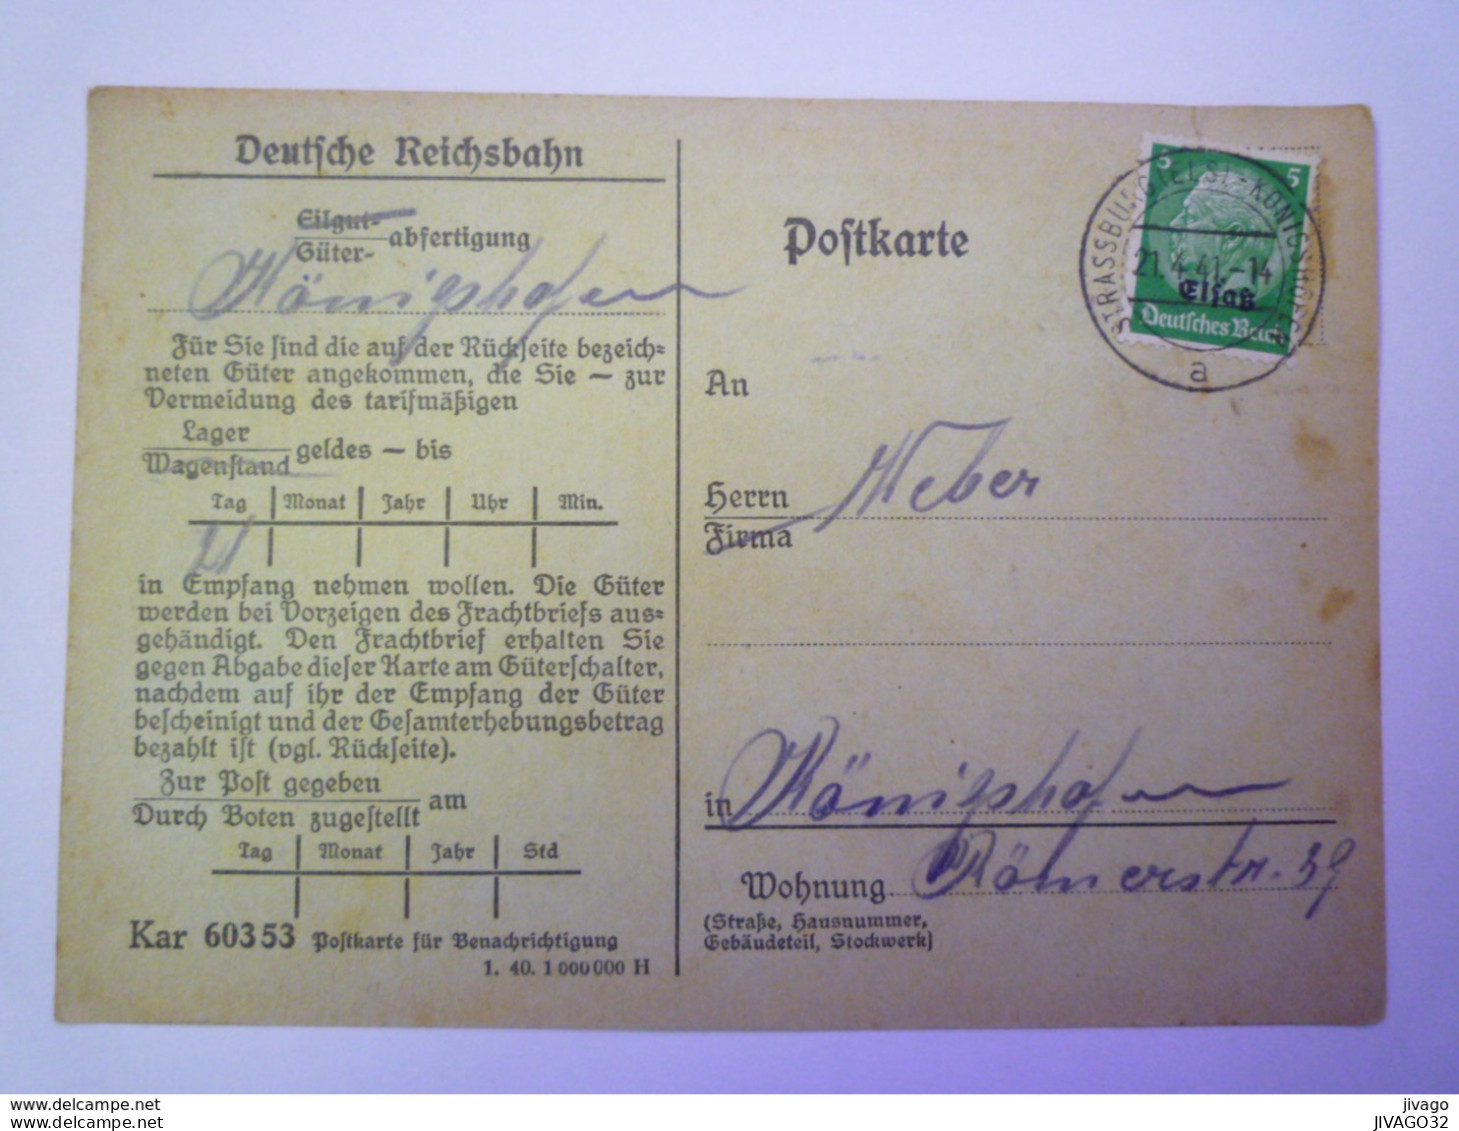 Deutsche Reichsbahn
Eilgut-
Güter-
abfertigung
Königshofen
Für Sie sind die auf der Rückseite bezeich-
neten Güter angekommen, die Sie — zur
Vermeidung des tarifmäßigen
Lager
Wagenstand
geldes — bis
Tag Monat Jahr Uhr Min.
21
in Empfang nehmen wollen. Die Güter
werden bei Vorzeigen des Frachtbriefs aus-
gehändigt. Den Frachtbrief erhalten Sie
gegen Abgabe dieser Karte am Güterschalter,
nachdem auf ihr der Empfang der Güter
bescheinigt und der Gesamterhebungsbetrag
bezahlt ist (vgl. Rückseite).
Zur Post gegeben
Durch Boten zugestellt
am
Tag Monat Jahr Std
Kar 60353 Postkarte für Benachrichtigung
1. 40. 1 000 000 H
Postkarte
5 5
STRASSBURG (ELS)-KÖNIGSHOFEN
21.4.41.-14
Elsaß
Deutsches Reich
a
An
Herrn
Firma
Weber
in Königshofen
Wohnung Römerstr. 39
(Straße, Hausnummer,
Gebäudeteil, Stockwerk)
jivago
JIVAGO32
jivago
JIVAGO32